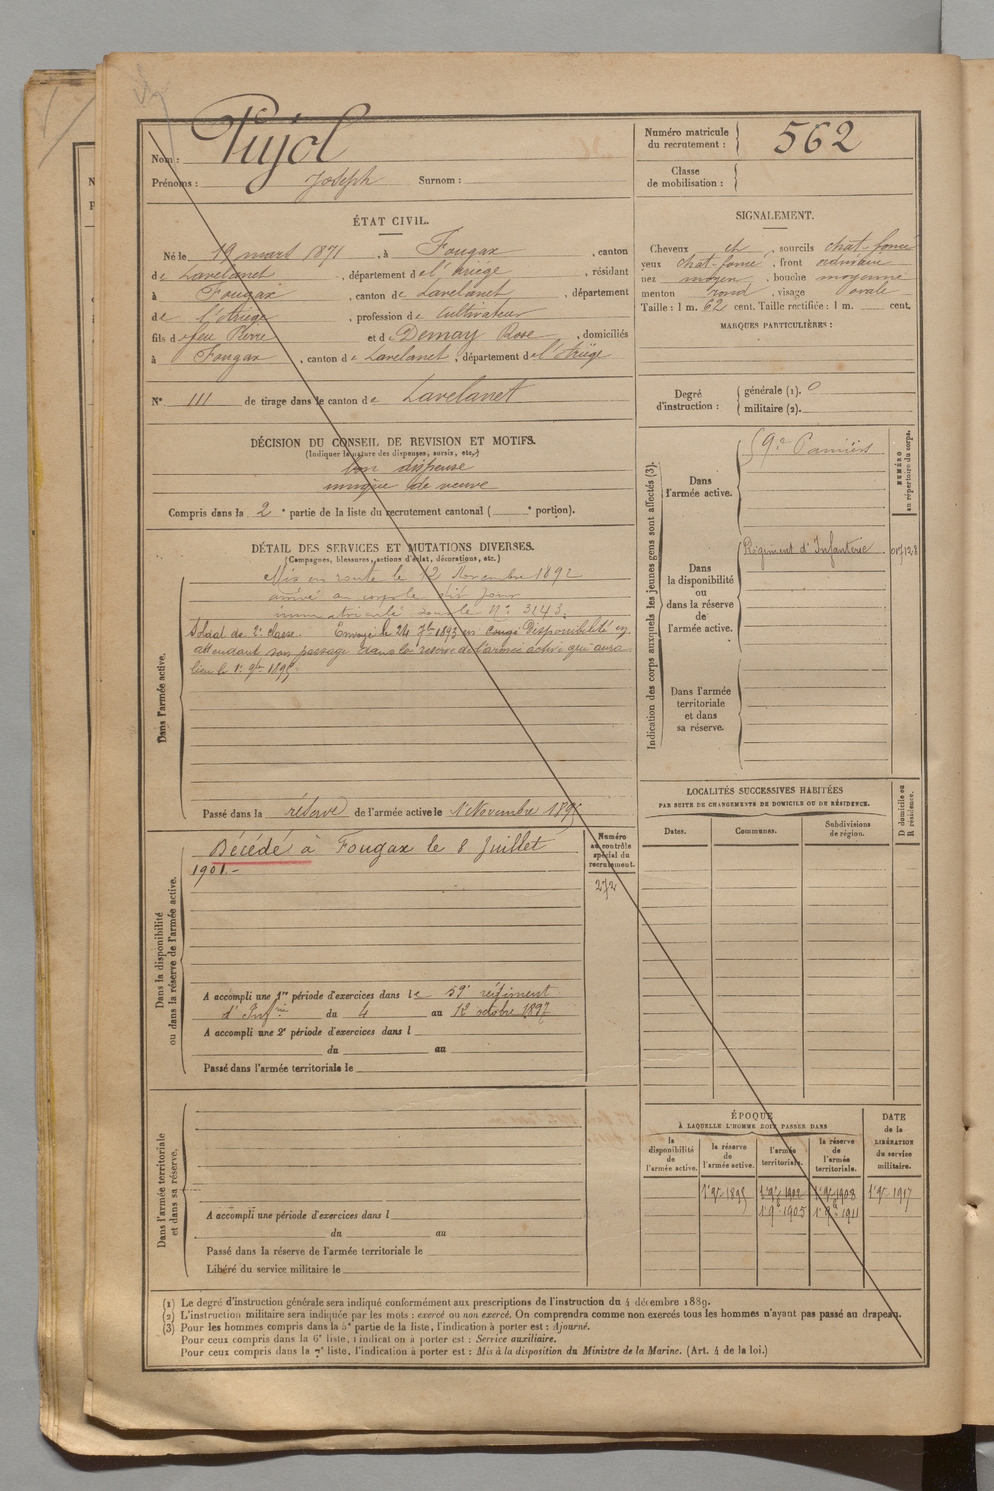 Nom : Pujol
Prénoms : Joseph Surnom :
Numéro matricule du recrutement : 562
Classe de mobilisation :
ÉTAT CIVIL.
Né le 19 mars 1871, à Fougax, canton
de Lavelanet, département de l'Ariège, résidant
à Fougax, canton de Lavelanet, département
de l'Ariège, profession de Cultivateur
fils de feu Pierre et de Demay Rose, domiciliés
à Fougax, canton de Lavelanet, département de l'Ariège
N° 111 de tirage dans le canton de Lavelanet
SIGNALEMENT.
Cheveux et, sourcils chat-foncé
yeux chat-foncé, front ordinaire
nez moyen, bouche moyenne
menton rond, visage ovale
Taille : 1 m. 62 cent. Taille rectifiée : 1 m. cent.
MARQUES PARTICULIÈRES :
Degré d'instruction :
générale (1). 0
militaire (2).
DÉCISION DU CONSEIL DE REVISION ET MOTIFS.
(Indiquer la nature des dispenses, sursis, etc.)
bon dispensé
unique de veuve
Compris dans la 2e partie de la liste du recrutement cantonal ( e portion).
DÉTAIL DES SERVICES ET MUTATIONS DIVERSES.
(Campagnes, blessures, actions d'éclat, décorations, etc.)
Dans l'armée active.
Mis en route le 12 Novembre 1892
arrivé au corps le dit jour
immatriculé sous le N° 3143.
Soldat de 2e classe. Envoyé le 24 7bre 1893 en congé Disponibilité en
attendant son passage dans la réserve de l'armée active qui aura
lieu le 1er 9bre 1895
Passé dans la réserve de l'armée active le 1er Novembre 1895
Indication des corps auxquels les jeunes gens sont affectés (3).
NUMÉRO au répertoire du corps.
Dans l'armée active.
59e Pamiers
Dans la disponibilité ou dans la réserve de l'armée active.
Régiment d'Infanterie
Dans l'armée territoriale et dans sa réserve.
LOCALITÉS SUCCESSIVES HABITÉES
PAR SUITE DE CHANGEMENTS DE DOMICILE OU DE RÉSIDENCE.
Dates. Communes. Subdivisions de région. D domicile ou R résidence.
Dans la disponibilité ou dans la réserve de l'armée active.
Numéro au contrôle spécial du recrutement.
272
Décédé à Fougax le 8 Juillet
1901.-
A accompli une 1re période d'exercices dans le 59e régiment
d'Infrie du 4 au 1er octobre 1897
A accompli une 2e période d'exercices dans l
du au
Passé dans l'armée territoriale le
Dans l'armée territoriale et dans sa réserve.
A accompli une période d'exercices dans l
du au
Passé dans la réserve de l'armée territoriale le
Libéré du service militaire le
ÉPOQUE
À LAQUELLE L'HOMME DOIT PASSER DANS
la disponibilité de l'armée active. la réserve de l'armée active. l'armée territoriale. la réserve de l'armée territoriale.
DATE de la LIBÉRATION du service militaire.
1er 9bre 1895 1er 9bre 1902 1er 9bre 1908 1er 9bre 1917
1er 9bre 1905 1er 9bre 1911
(1) Le degré d'instruction générale sera indiqué conformément aux prescriptions de l'instruction du 4 décembre 1889.
(2) L'instruction militaire sera indiquée par les mots : exercé ou non exercé. On comprendra comme non exercés tous les hommes n'ayant pas passé au drapeau.
(3) Pour les hommes compris dans la 5e partie de la liste, l'indication à porter est : Ajourné.
Pour ceux compris dans la 6e liste, l'indication à porter est : Service auxiliaire.
Pour ceux compris dans la 7e liste, l'indication à porter est : Mis à la disposition du Ministre de la Marine. (Art. 4 de la loi.)